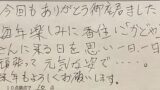 今回もありがとう御座いました
毎年楽しみに香住に「かどや」
さんに来る日を思い一日、一日
頑張って元気な姿で・・・・
来年もよろしくお願いします。